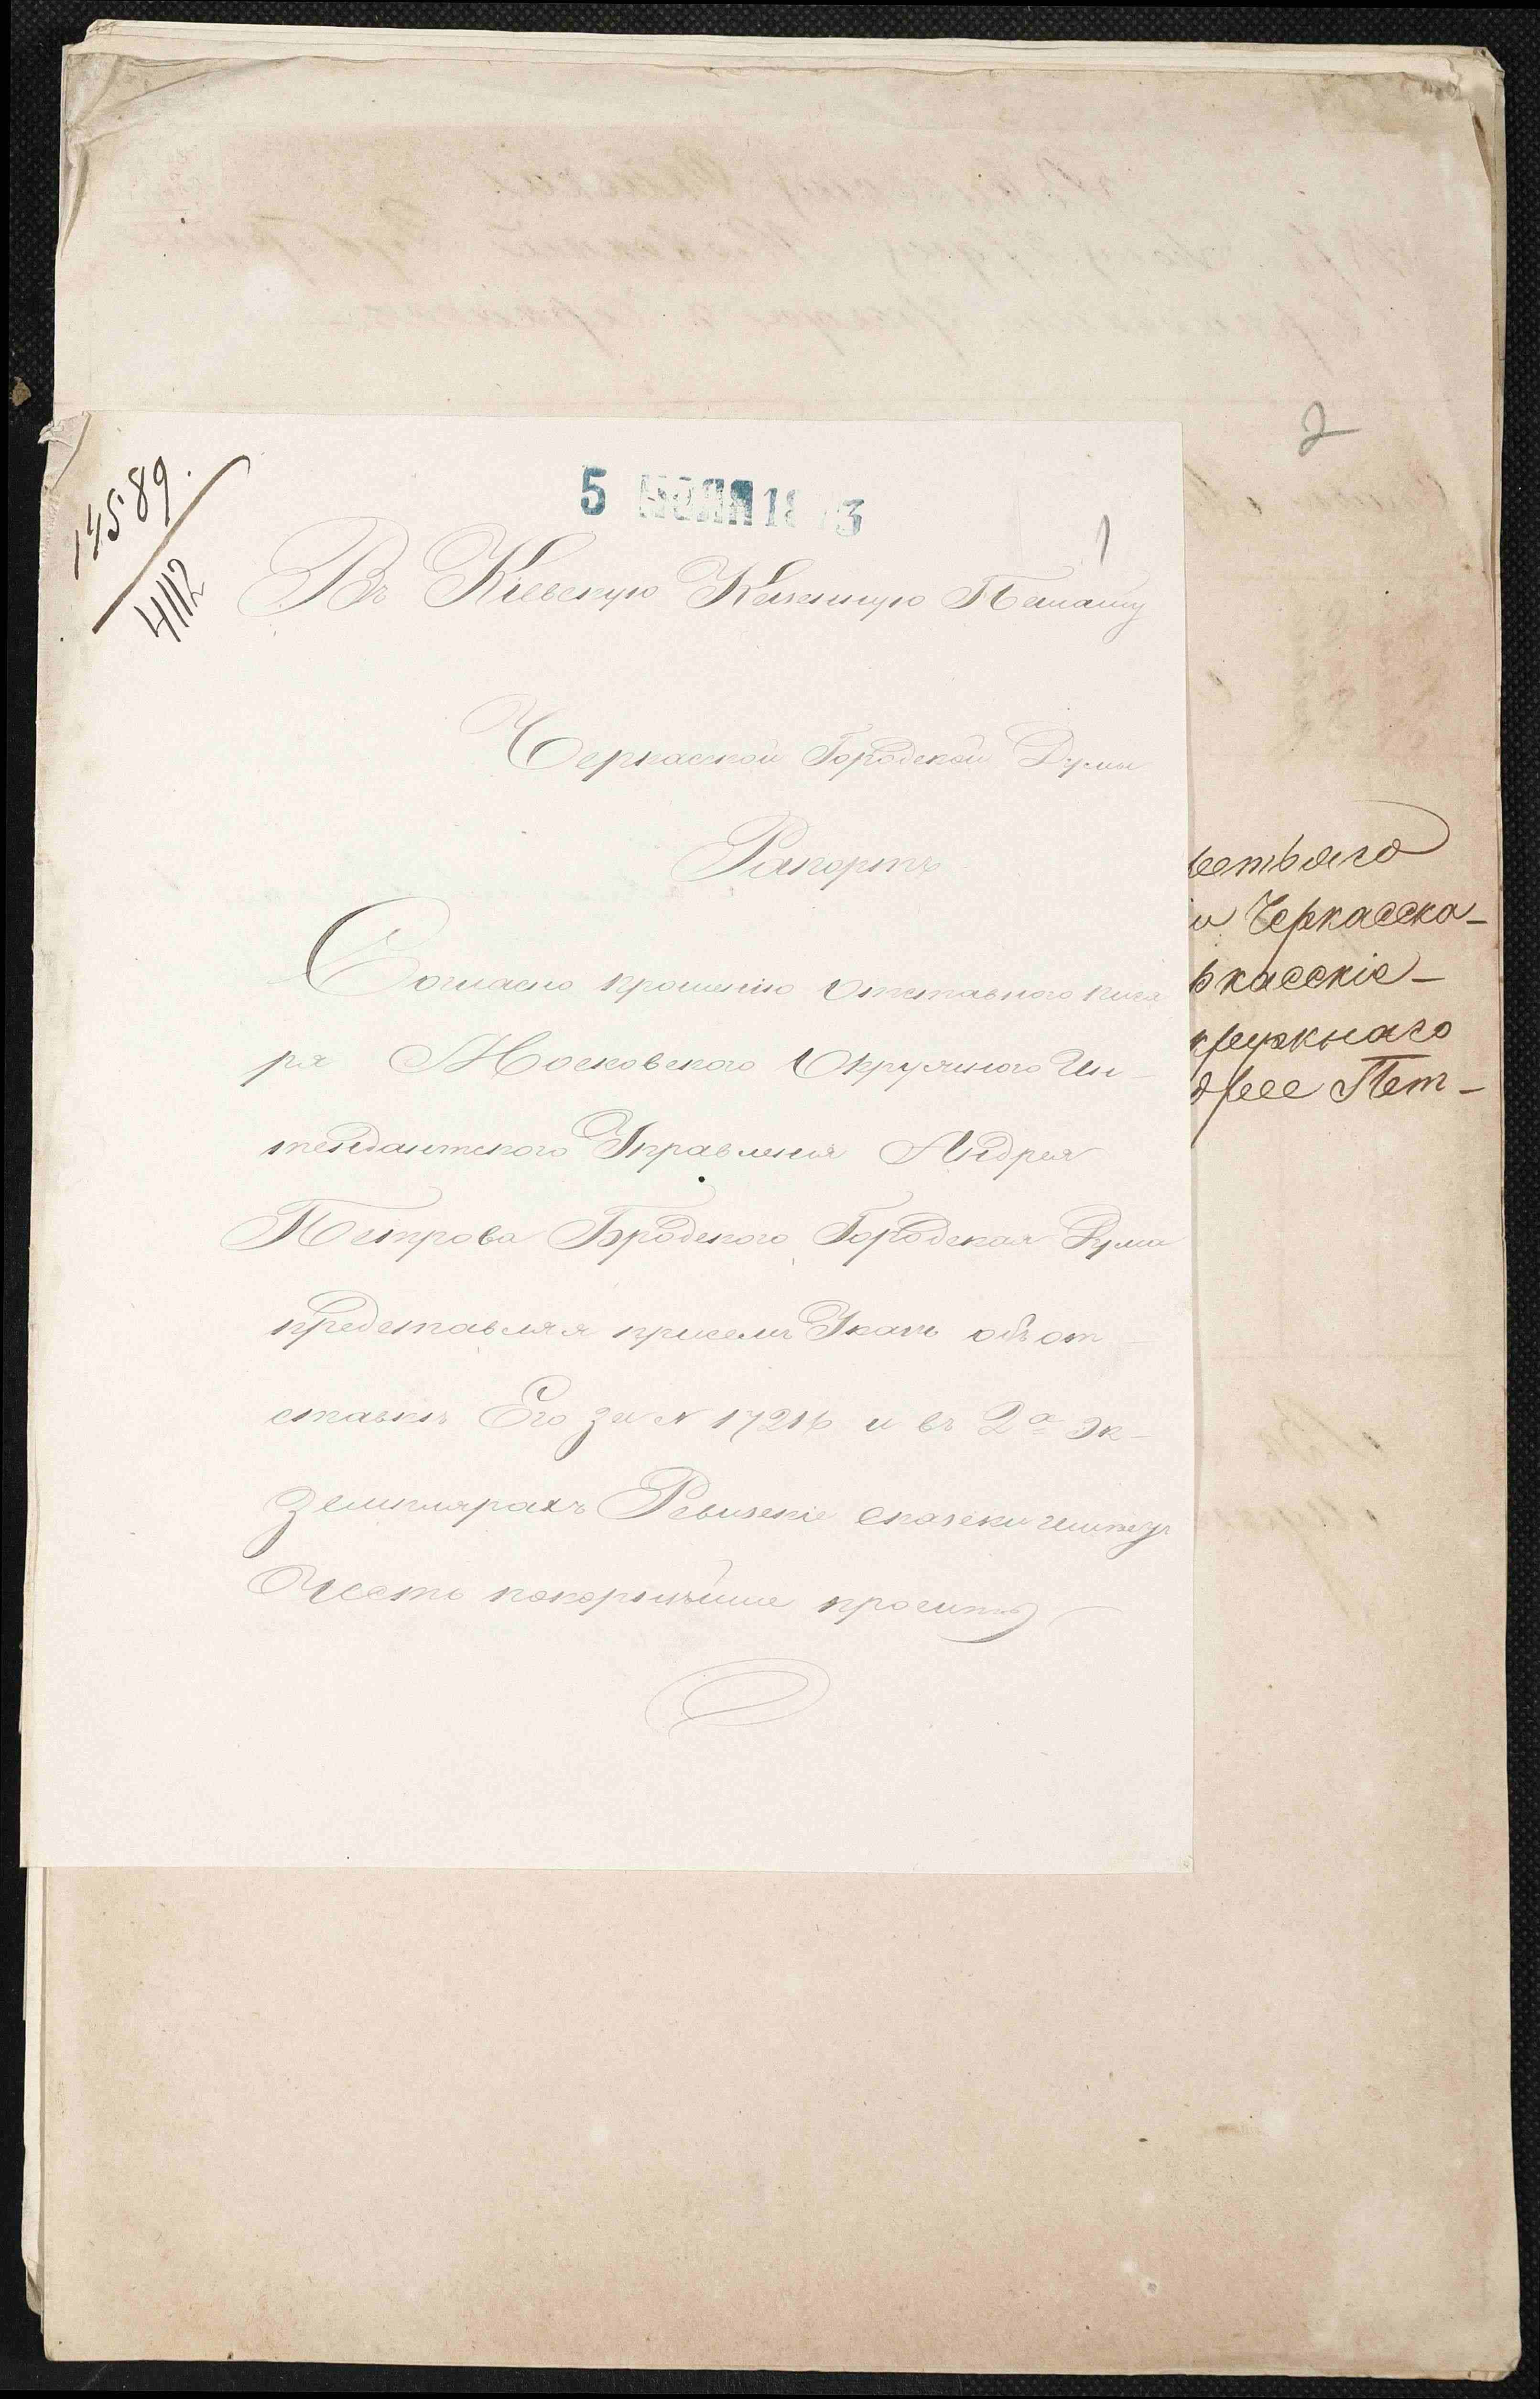 14589.
4112
5
1
2
Въ Кіевскую Казенную Палату
Черкаской Городской Думы
Рапортъ
Согласно прошенію Отставного писа
ря Московского Окружного Ин-
тендантского Управленія Андрея
Петрова Бродского Городская Дума
представляя присемъ Указъ объ от
ставкѣ Его за № 17216 и въ 2ª эк-
земплярахъ Ревизскіе сказски
Честь покорнѣйше просить
и Черкасска-
ркасскіе-
кружнаго
дрее Пет-